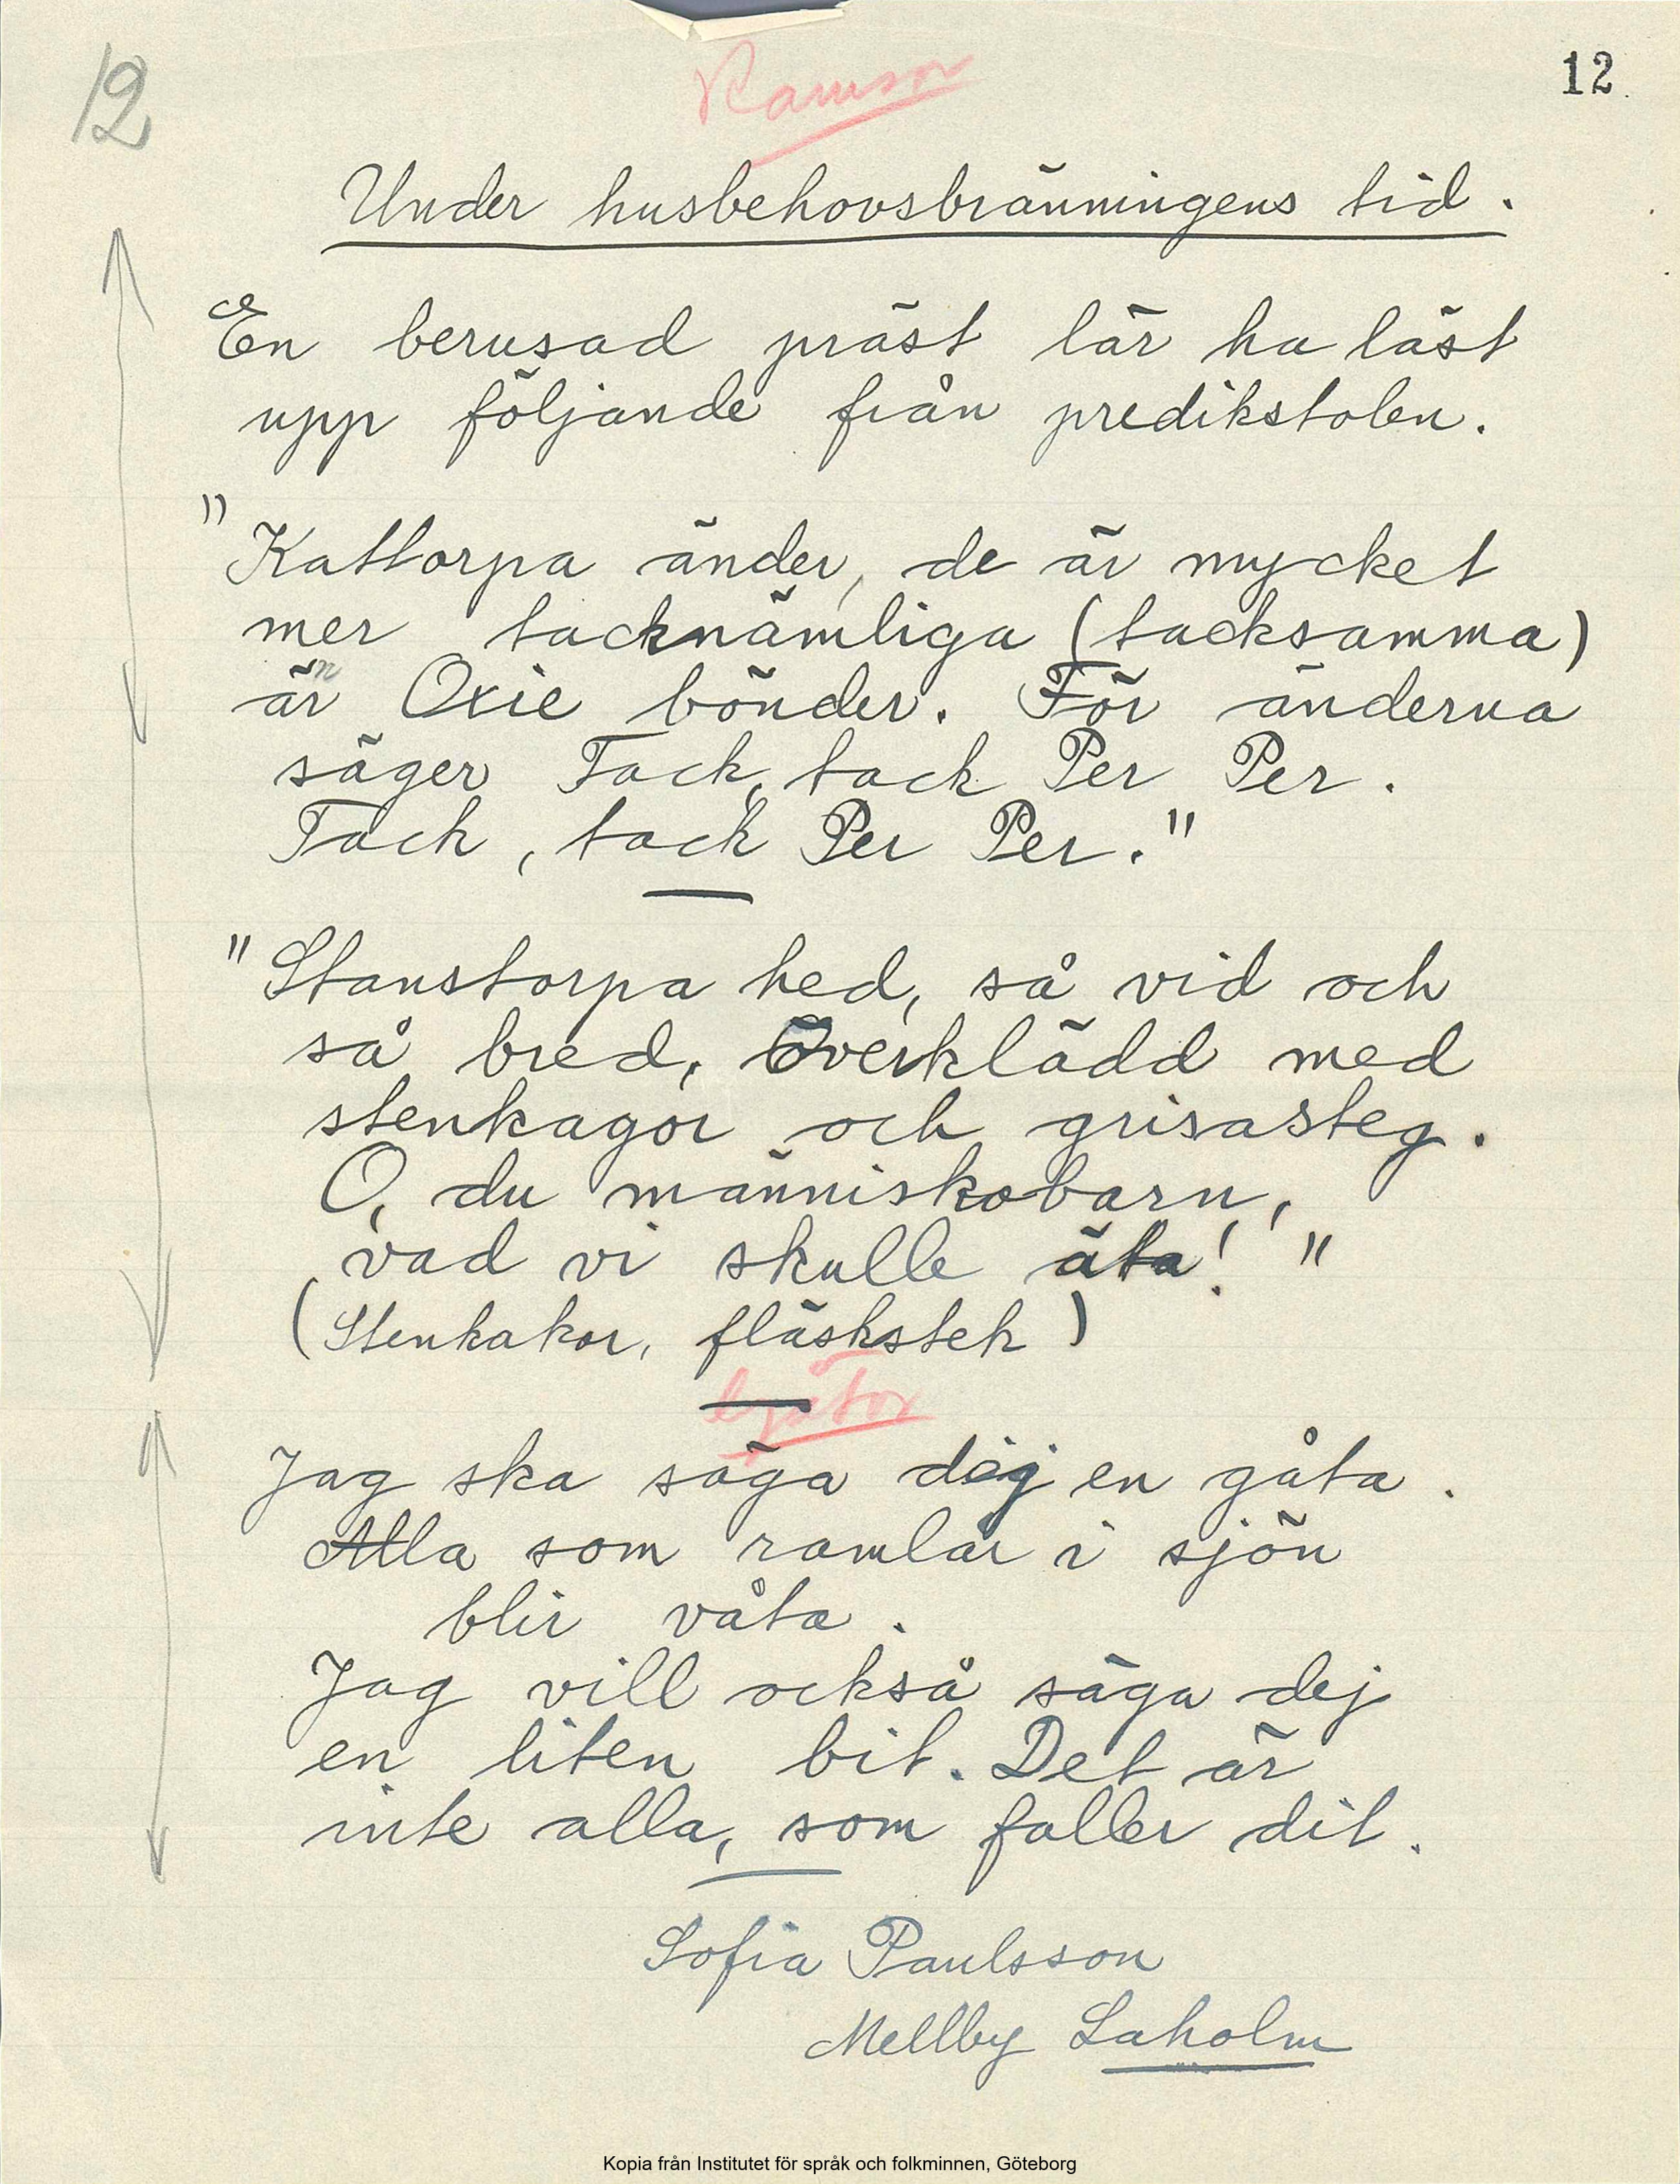 12
12
Ramsor
Under husbehovsbränningens tid.
En berusad präst lär ha läst
upp följande från predikstolen.
"Kattorpa änder, de är mycket
mer tacknämliga (tacksamma)
än Oxie bönder. För änderna
säger Tack, tack Per Per.
Tack, tack Per Per."
"Stanstorpa hed, så vid och
så bred, överklädd med
stenkagor och grisasteg.
O, du människobarn,
vad vi skulle äta! "
(Stenkakor, fläskstek)
Gåtor
Jag ska säga dej en gåta.
Alla som ramlar i sjön
blir våta.
Jag vill också säga dej
en liten bit. Det är
inte alla, som faller dit.
Sofia Paulsson
Mellby Laholm
Kopia från Institutet för språk och folkminnen, Göteborg